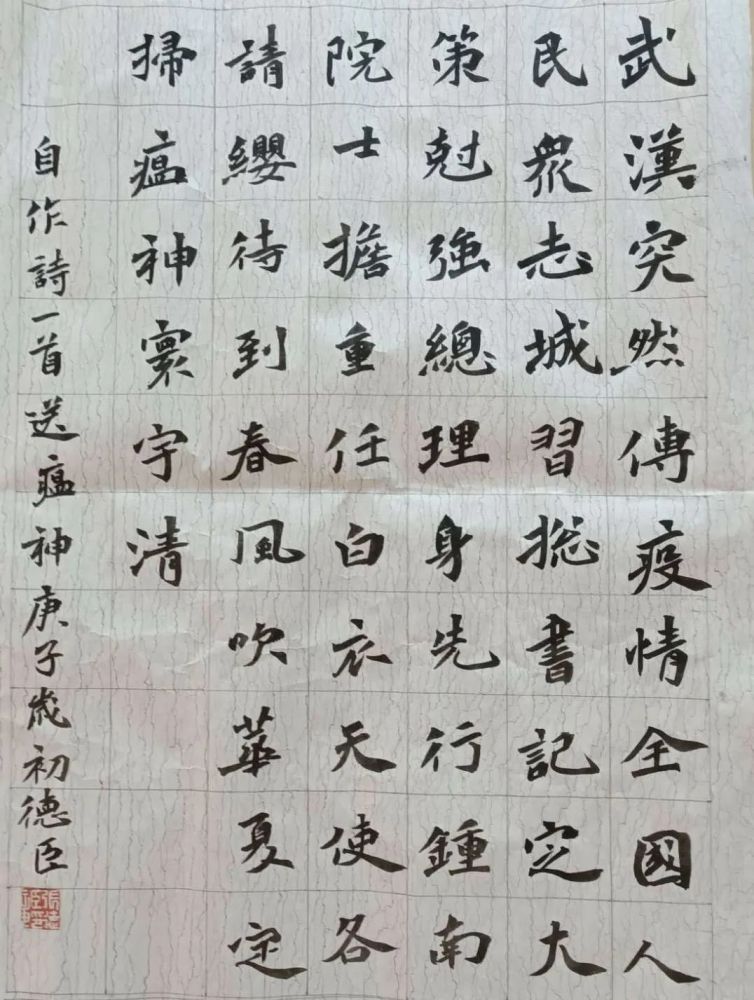 武漢突然傳疫情全國人
民衆志城習捴書記定大
策尅強總理身先行鍾南
院士擔重任白衣天使各
請纓待到春風吹華夏定
掃瘟神寰宇清
自作詩一首送瘟神庚子歲初德臣